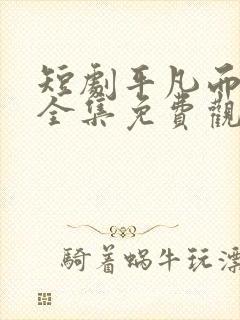 短劇平凡而
全集免費觀
騎着蝸牛玩漂